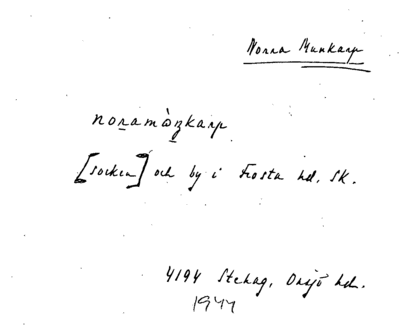 Norra Munkarp
noramòzkarp
[socken] och by i Frosta hd. Sk.
4194 Stehag, Onsjö hd.
1944